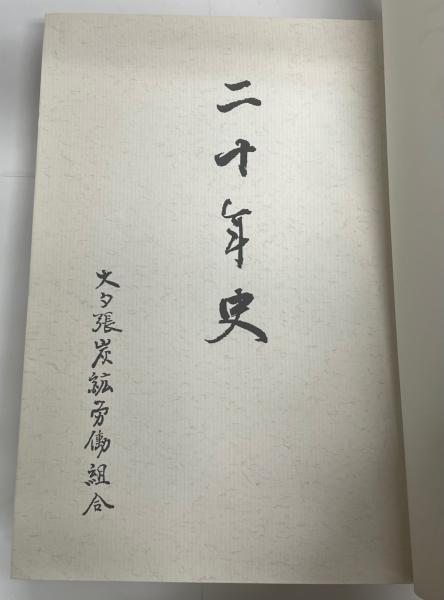 二十年史
大夕張炭鉱労働組合